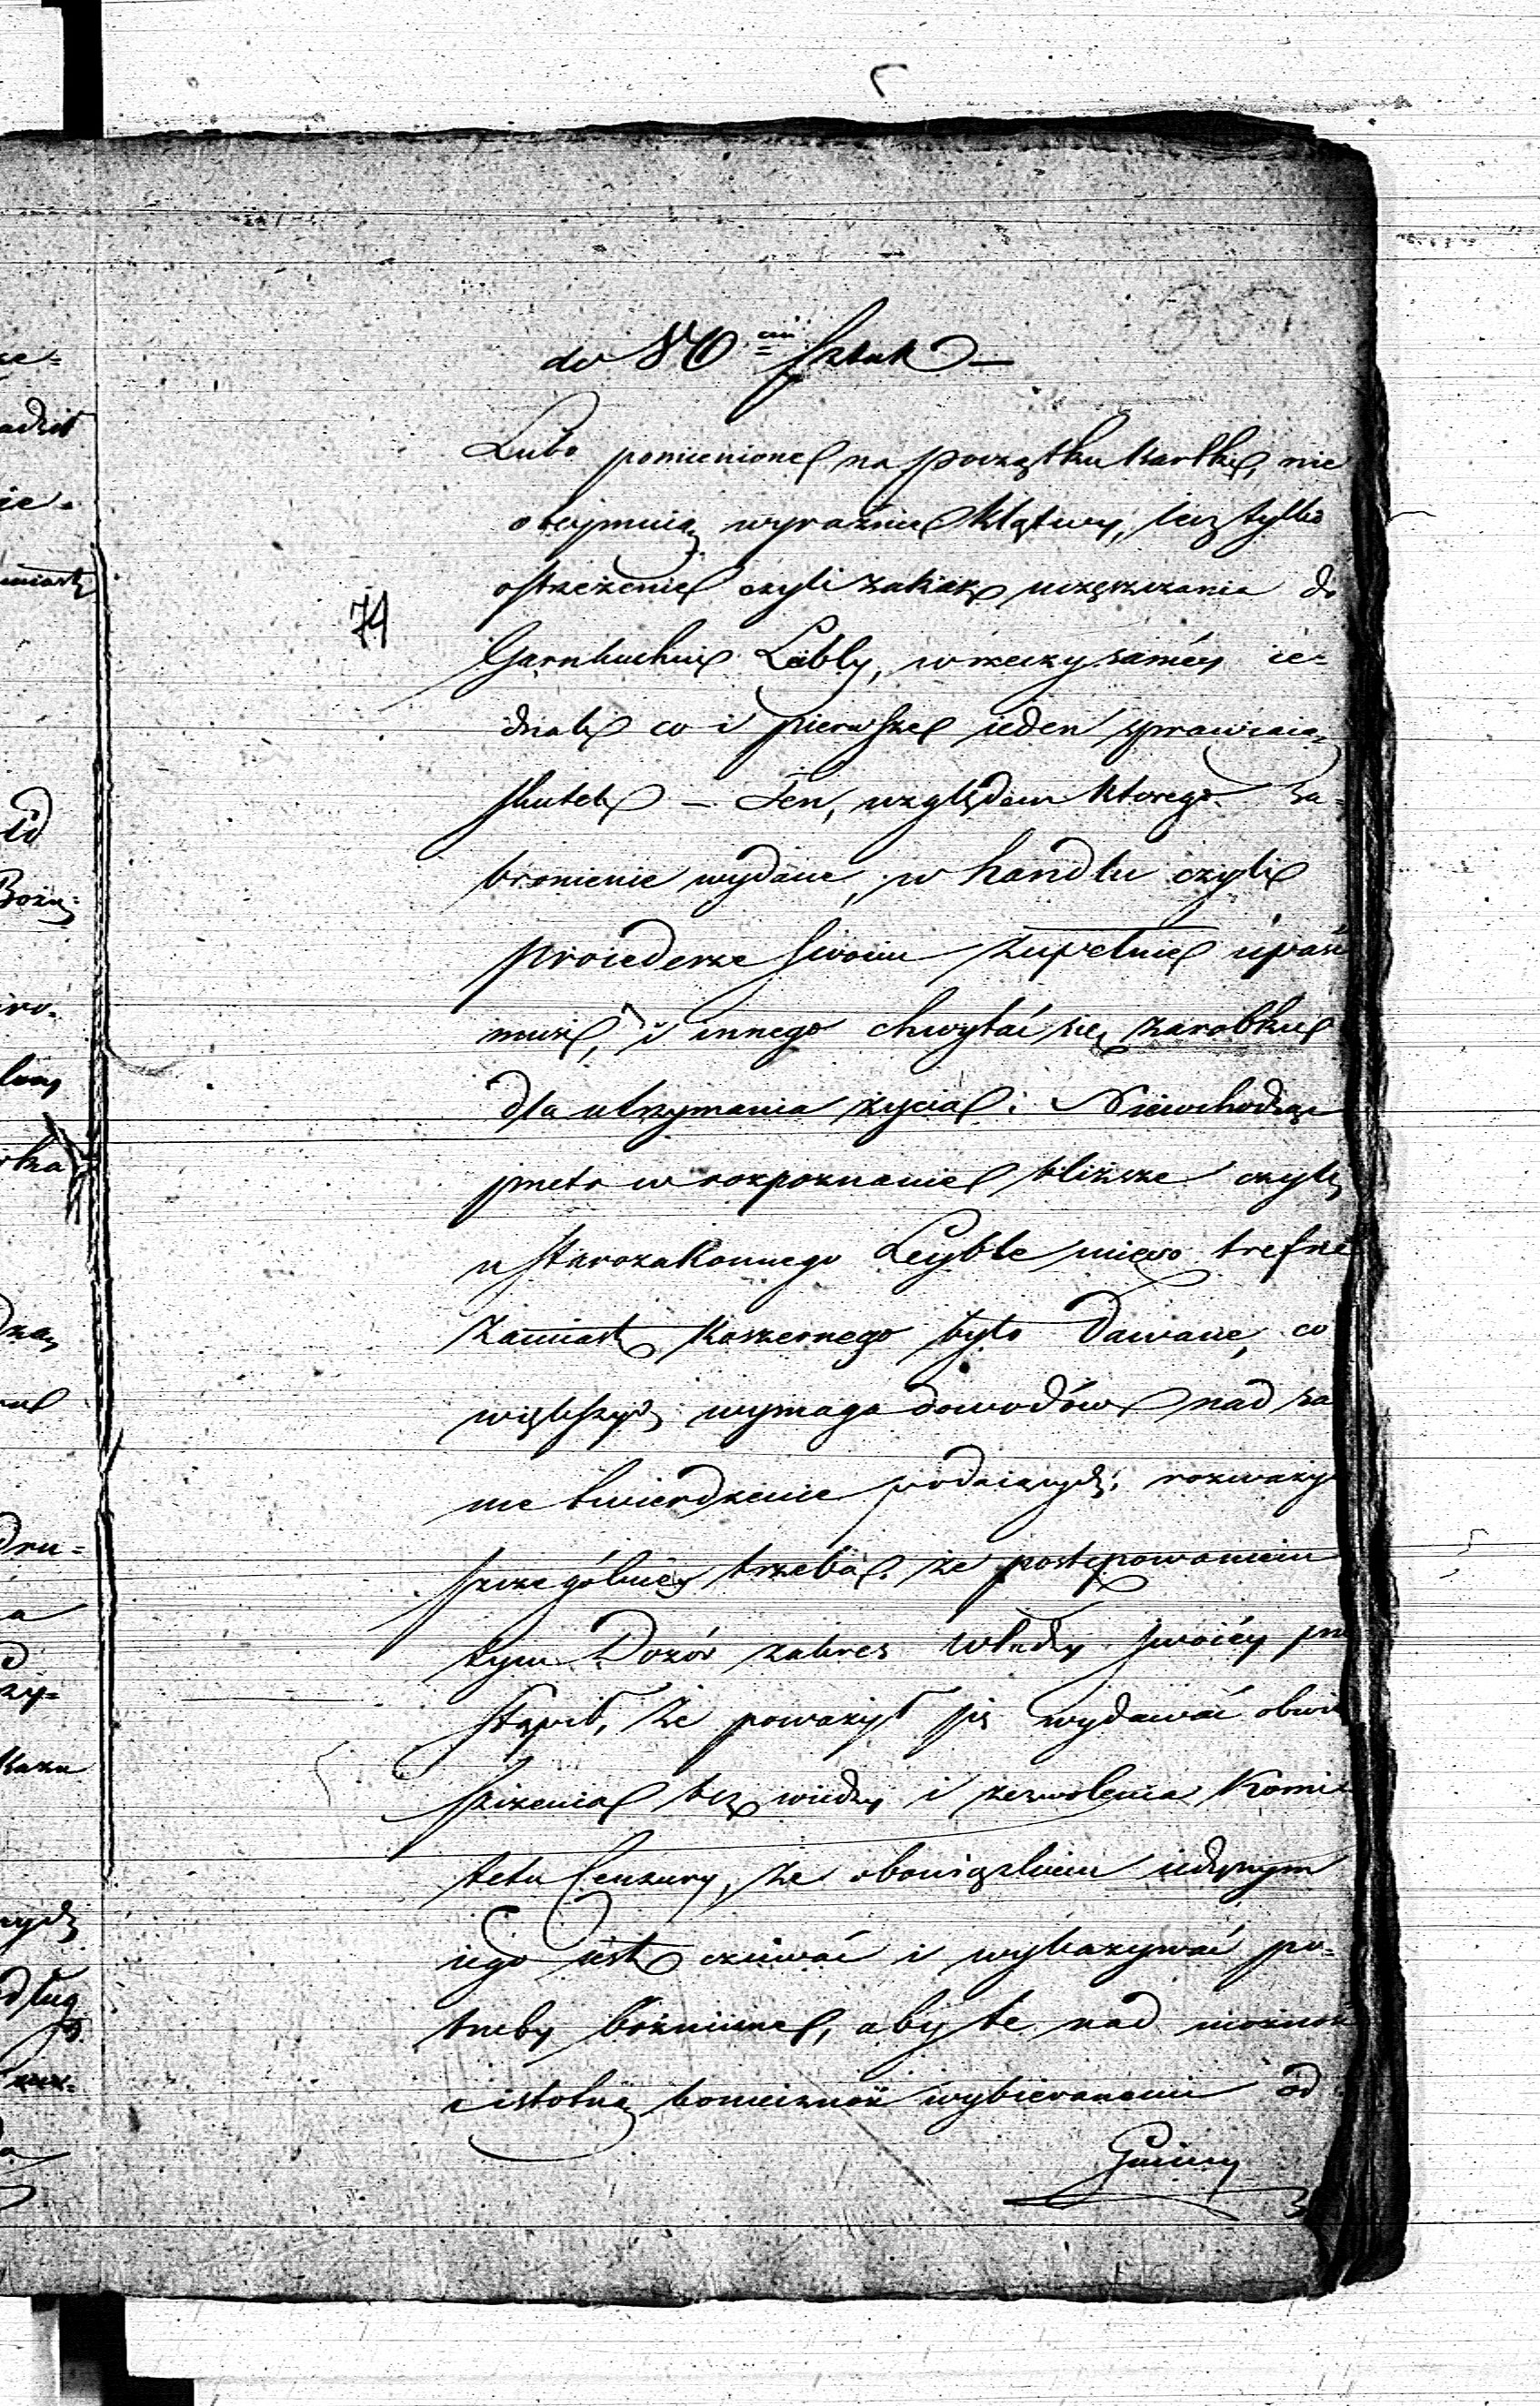 do 80ciu Sztuk —
Lubo pomienione na początku kartki, nie
obejmuią wyraźnie klątwy, lecz tylko
ostrzeżenie czyli zakaz uczęszczania do
74
Garkuchni Leibly, w rzeczy saméy ie=
dnak co i pierwsze ieden sprawiaią
skutek — Ten, względem którego za=
bronienie wydane, w handlu czyli
procederze swoim zupełnie upaść
musi, i innego chwytać się zarobku
dla utrzymania życia: Niewchodząc
przeto w rozpoznanie bliższe czyli
u Starozakonnego Leyble mięso trefne
zamiast koszernego było dawane, co
większych wymaga dowodów nad sa
me twierdzenie podaiących, rozważyć
szczególniey trzeba, że postępowaniem
tym Dozór zakres władzy swoiéy prze
stąpił, że poważył się wydawać obwie
szczenia bez wiedzy i zezwolenia Komi
tetu Cenzury, że obowiązkiem iedynym
iego iest czuwać i wykazywać po=
trzeby bóżnicze, aby te nad możność
i istotną konieczność wybieranemi od
Gminy